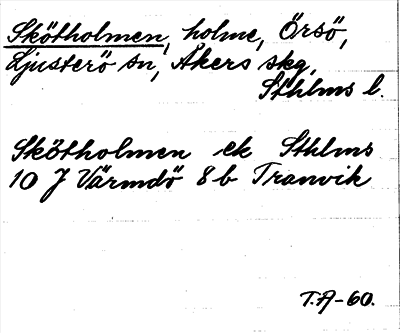 Skötholmen, holme, Örsö,
Ljusterö sn, Åkers skg,
Sthlms l.
Skötholmen ek Sthlms
10 J Värmdö 8b Tranvik
T.A-60.